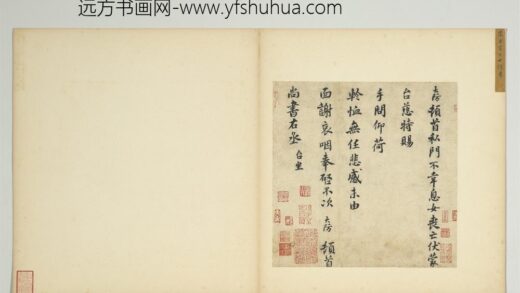 远方书画网-www.yfshuhua.com
頓首私門不幸息女喪亡伏蒙
台慈特賜
手問仰荷
軫恤無任悲感未由
面謝哀咽奉啓不次 頓首
尚書右丞 台坐